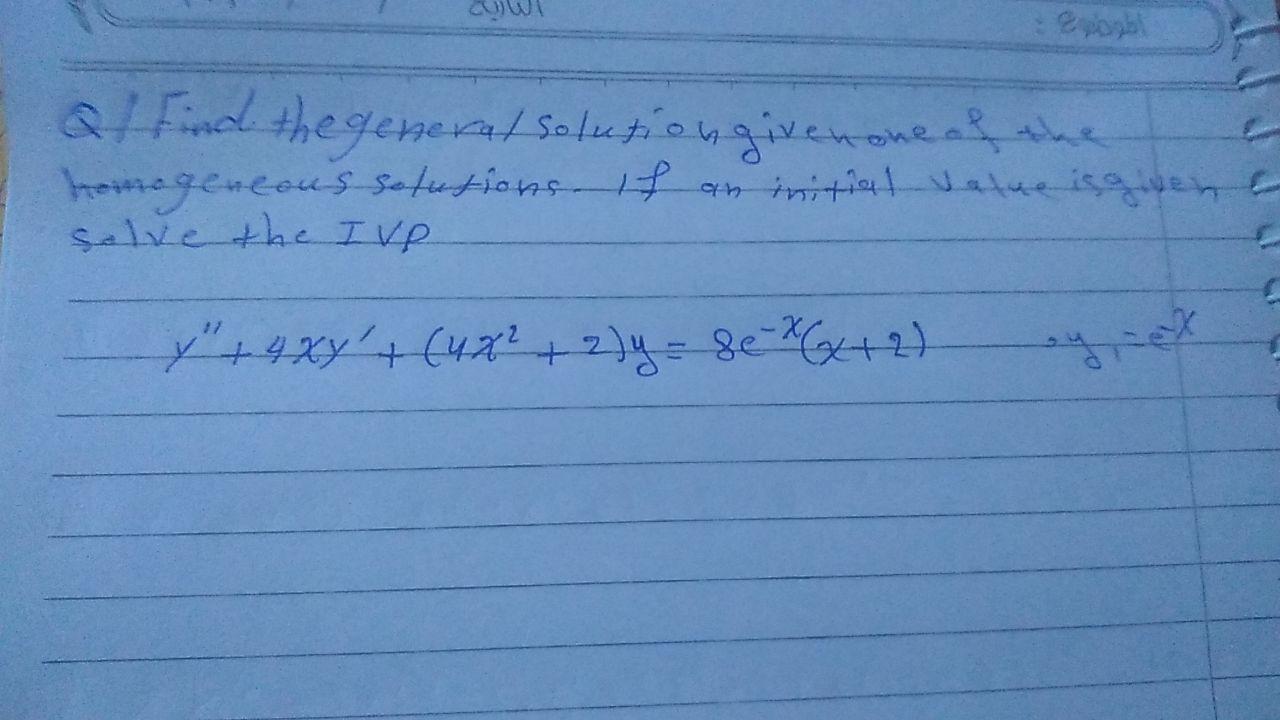 Q/ Find the general solution given one of the
homogeneous solutions. If an initial value is given
solve the IVP
y" + 4xy' + (4x² + 2)y = 8e⁻ˣ(x+2) , y₁ = e⁻ˣ